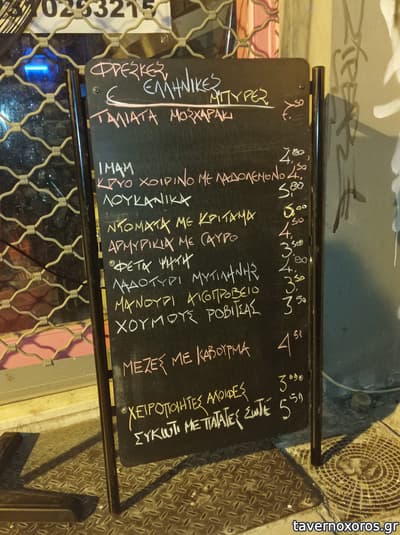 ΦΡΕΣΚΕΣ
ΕΛΛΗΝΙΚΕΣ
ΜΠΥΡΕΣ
ΤΑΛΙΑΤΑ ΜΟΣΧΑΡΑΚΙ 7,50
ΙΜΑΜ 4,80
ΚΡΥΟ ΧΟΙΡΙΝΟ ΜΕ ΛΑΔΟΛΕΜΟΝΟ 4,50
ΛΟΥΚΑΝΙΚΑ 5,80
ΝΤΟΜΑΤΑ ΜΕ ΚΡΙΤΑΜΑ 5,00
ΑΡΜΥΡΙΚΙΑ ΜΕ ΓΑΥΡΟ 4,50
ΦΕΤΑ ΨΗΤΗ 3,50
ΛΑΔΟΤΥΡΙ ΜΥΤΙΛΗΝΗΣ 4,80
ΜΑΝΟΥΡΙ ΑΙΓΟΠΡΟΒΕΙΟ 3,50
ΧΟΥΜΟΥΣ ΡΟΒΙΤΣΑΣ 3,50
ΜΕΖΕΣ ΜΕ ΚΑΒΟΥΡΜΑ 4,50
ΧΕΙΡΟΠΟΙΗΤΕΣ ΑΛΟΙΦΕΣ 3,00
ΣΥΚΩΤΙ ΜΕ ΠΑΤΑΤΕΣ ΣΩΤΕ 5,50
tavernoxoros.gr